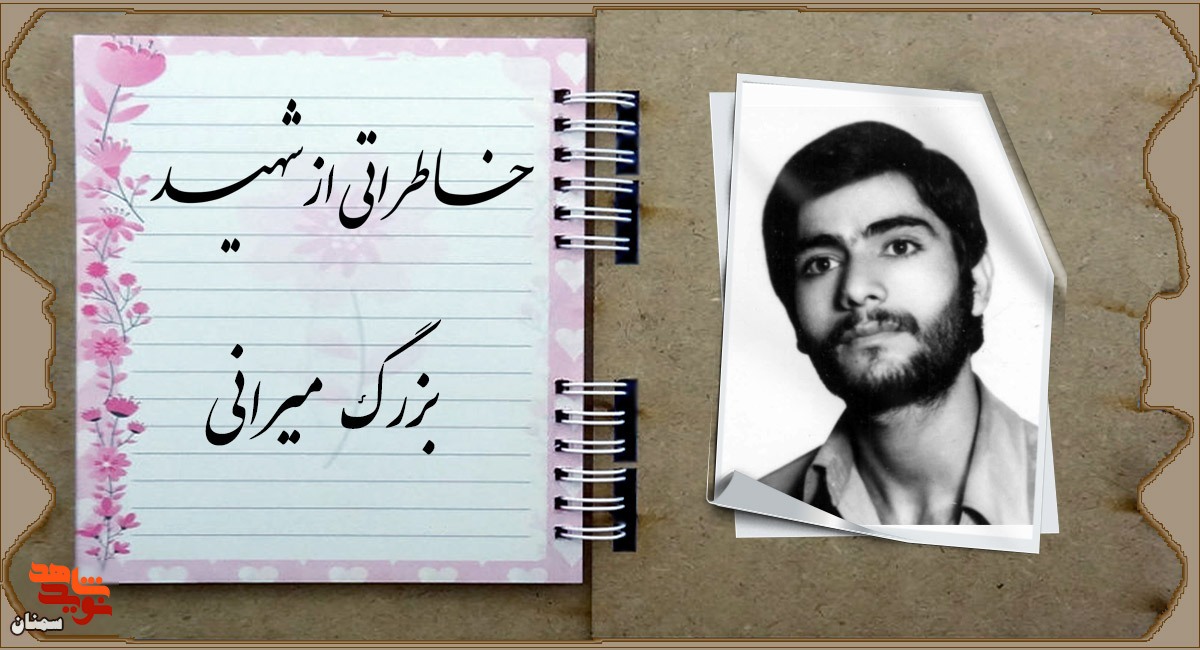 خاطراتی از شهید
بزرگ میرانی
نوید شاهد
سمنان